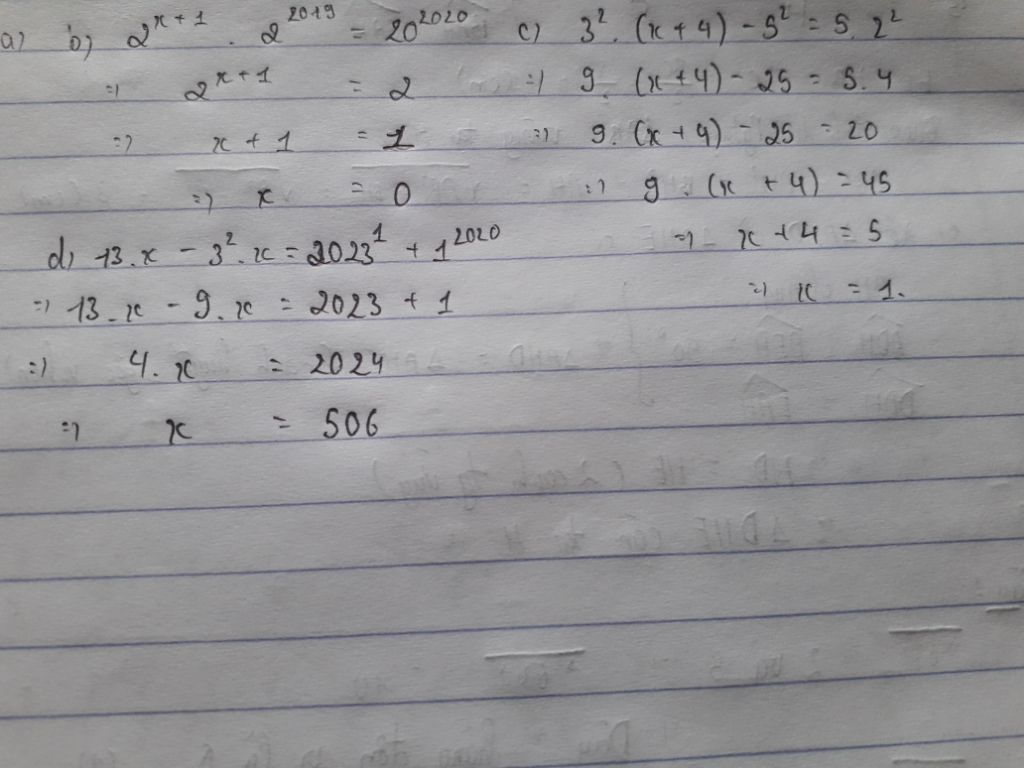 a) b) 2^{x+1} . 2^{2019} = 20^{2020}
=> 2^{x+1} = 2
=> x + 1 = 1
=> x = 0
c) 3^2 . (x + 4) - 5^2 = 5. 2^2
=> 9. (x + 4) - 25 = 5. 4
=> 9. (x + 4) - 25 = 20
=> 9 . (x + 4) = 45
=> x + 4 = 5
=> x = 1.
d) 13.x - 3^2.x = 2023^1 + 1^{2020}
=> 13.x - 9.x = 2023 + 1
=> 4.x = 2024
=> x = 506